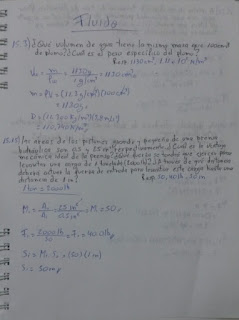 Fluido
15.3) ¿Qué volumen de agua tiene la misma masa que 100 cm³
de plomo? ¿Cuál es el peso específico del plomo?
Resp. 1130 cm³, 1.11 x 10⁵ N/m³
Va = m/Pa = 1130g / 1 g/cm³ = 1130 cm³
m = PV = (11.3 g/cm³)(100 cm³)
= 1130g
D = (11.300 kg/m³)(9.8 m/s²)
= 110,740 N/m³
15.19) Las áreas de los pistones grande y pequeño de una prensa
hidráulica son 0.5 y 25 in² respectivamente ¿Cuál es la ventaja
mecánica ideal de la prensa? ¿Qué fuerza se tendrá que ejercer para
levantar una carga de 1 tonelada (2000 lb)? ¿A través de qué distancia
deberá actuar la fuerza de entrada para levantar esta carga hasta una
distancia de 1 in? Resp. 50, 40 lb, 50 in
1 ton = 2000 lb
M₁ = A₀/A₁ = 25 in²/0.5 in² = M₁ = 50
F₁ = 2000 lb/50 = F₁ = 40.0 lb
S₁ = M₁ S₀ = (50)(1 in)
S₁ = 50 in